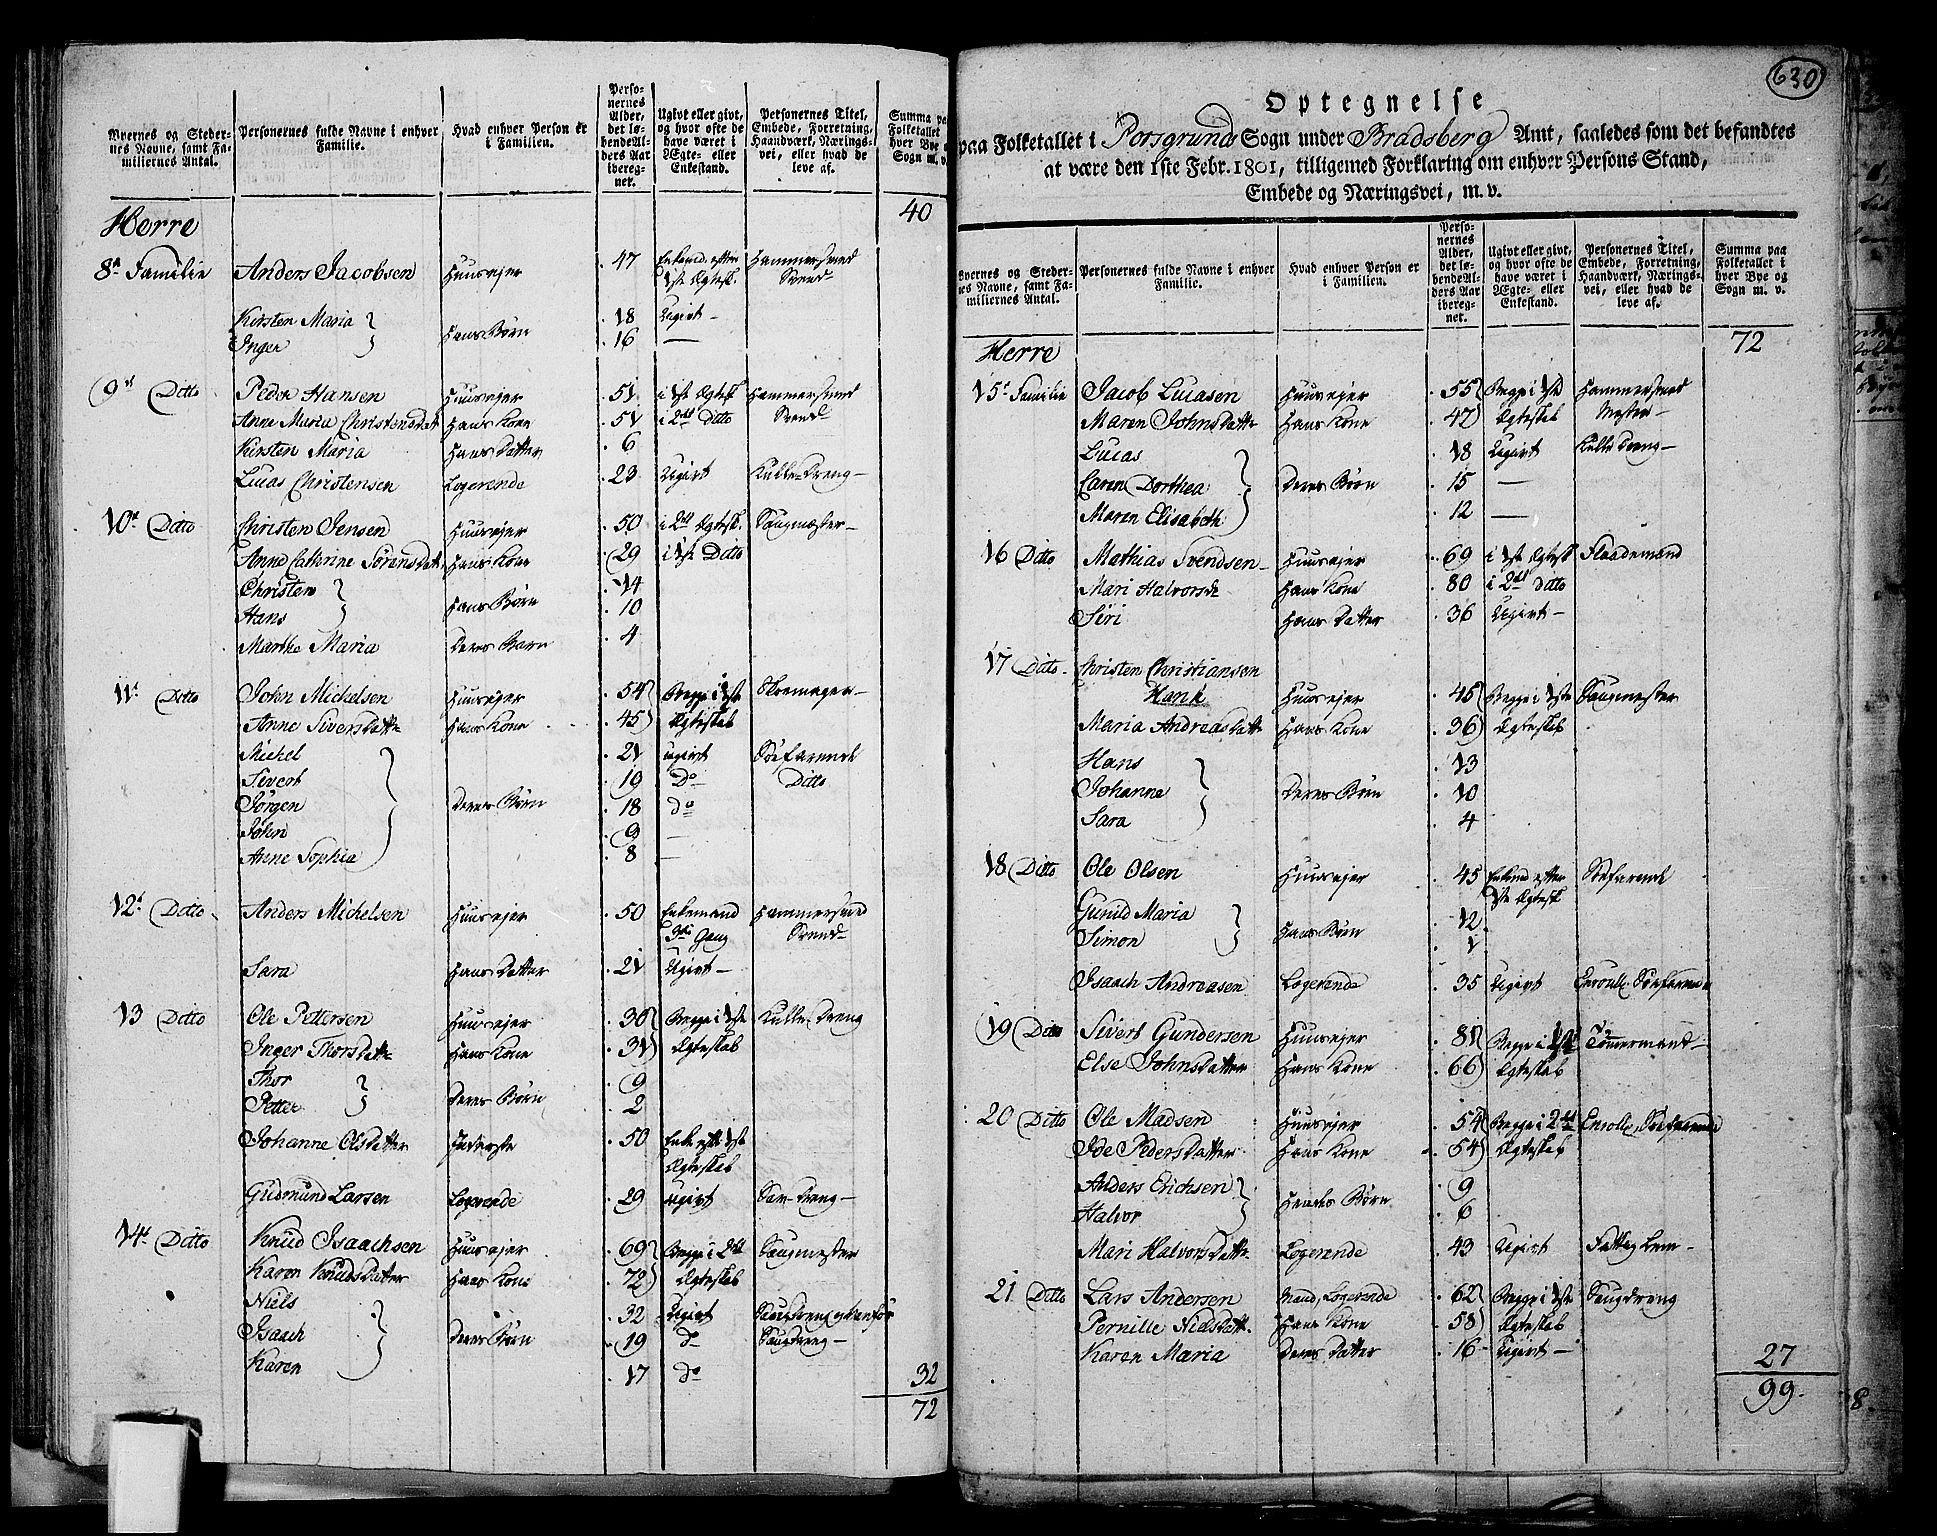 Byernes og Steder-
nes Navne, samt Fa-
miliernes Antal.
Personernes fulde Navne i enhver
Familie.
Hvad enhver Person er
i Familien.
Perso-
nernes
Alder,
det lø-
bende Al-
ders Aar
iberegnet.
Ugivt eller givt,
og hvor ofte de
have været i
Ægte- eller
Enkestand.
Personernes Titel,
Embede, Forretning,
Haandværk, Nærings-
vei, eller hvad de
leve af.
Summa paa
Folketallet i
hver Bye og
Sogn m. v.
Herre 40
8de Familie Anders Jacobsen Huusejer 47 Enkemd. efter Hammersmed
1ste Ægtesk. Svend
Kirsten Maria Hans Børn 18 Ugivt
Inger 16 —
9de Ditto Peder Hansen Huusejer 51 i 1ste Ægtesk. Hammersmed
Anne Maria Christensdat Hans Kone 51 i 2det Ditto Svend
Kirsten Maria Hans Datter 6
Lucas Christensen Logerende 23 Ugivt Kulle-Dreng
10de Ditto Christen Jensen Huusejer 50 i 2det Ægtesk. Saugmester
Anne Cathrine Sørensdat. Hans Kone 29 i 1ste Ditto
Christen Hans Børn 14
Hans 10
Marthe Maria Deres Barn 4
11te Ditto John Michelsen Huusejer 54 Begge i 1ste Skomager
Anne Siversdatte Hans Kone 45 Ægteskab
Michel Deres Børn 21 ugivt Søefarende
Sivert 19 Do Ditto
Jørgen 18 do
John 9 —
Anne Sophia 8 —
12te Ditto Anders Michelsen Huusejer 50 Enkemand Hammersmed
3die Gang Svend
Sara Hans Datter 21 Ugivt
13 Ditto Ole Pettersen Huusejer 30 Begge i 1ste Kulle-Dreng
Inger Thorsdatte Hans Kone 31 Ægteskab
Thor Deres Børn 9
Petter 2
Johanne Olsdatter Inderste 50 Enke efter 1ste
Ægteskab
Gudmund Larsen Logerende 29 Ugivt Sav-Dreng
14de Ditto Knud Isaachsen Huusejer 69 Begge i 2det Saugmester
Karen Knudsdatter Hans Kone 72 Ægteskab
Niels Deres Børn 32 Ugivt Saugdreng
Isaach 19 do Saugdreng
Karen 17 do
32
72
630
Optegnelse
paa Folketallet i Porsgrunds Sogn under Bradsberg Amt, saaledes som det befandtes
at være den 1ste Febr. 1801, tilligemed Forklaring om enhver Persons Stand,
Embede og Næringsvei, m. v.
Byernes og Steder-
nes Navne, samt Fa-
miliernes Antal.
Personernes fulde Navne i enhver
Familie.
Hvad enhver Person er
i Familien.
Perso-
nernes
Alder,
det lø-
bende Al-
ders Aar
iberegnet.
Ugivt eller givt,
og hvor ofte de
have været i
Ægte- eller
Enkestand.
Personernes Titel,
Embede, Forretning,
Haandværk, Nærings-
vei, eller hvad de
leve af.
Summa paa
Folketallet i
hver Bye og
Sogn m. v.
Herre 72
15de Familie Jacob Lucasen Huusejer 55 Begge i 1ste Hammersmed
Maren Johnsdatte Hans Kone 47 Ægteskab Mester
Lucas Deres Børn 18 Ugivt Kulle Dreng
Caren Dorthea 15 —
Maren Elisabeth 12 —
16 Ditto Mathias Svendsen Huusejer 69 i 1ste Ægtesk. Flaademand
Mari Halvorsdr Hans Kone 80 i 2det Ditto
Siri Hans Datter 36 Ugivt
17 Ditto Christen Christiansen
Hank Huusejer 45 Begge i 1ste Saugmester
Maria Andreasdatte Hans Kone 36 Ægteskab
Hans Deres Børn 13
Johanne 10
Sara 4
18 Ditto Ole Olsen Huusejer 45 Enkemd. efter Søefarende
1ste Ægtesk.
Gunild Maria Hans Børn 12
Simon 1
Isaach Andreasen Logerende 35 Ugivt Enroull. Søefarende
19 Ditto Sivert Gundersen Huusejer 81 Begge i 1ste Tømmermand
Else Johnsdatter Hans Kone 66 Ægteskab
20 Ditto Ole Madsen Huusejer 54 Begge i 2det Enroll. Søefarende
Ide Pedersdatter Hans Kone 54 Ægteskab
Anders Erichsen Hendes Børn 9
Halvor 6
Mari Halvorsdatte Logerende 43 Ugivt Fattig Lem
21 Ditto Lars Andersen Mand, Logerende 62 Begge i 1ste Saugdreng
Pernille Nielsdatt. Hans Kone 58 Ægteskab
Karen Maria Deres Datter 16 Ugivt
27
99